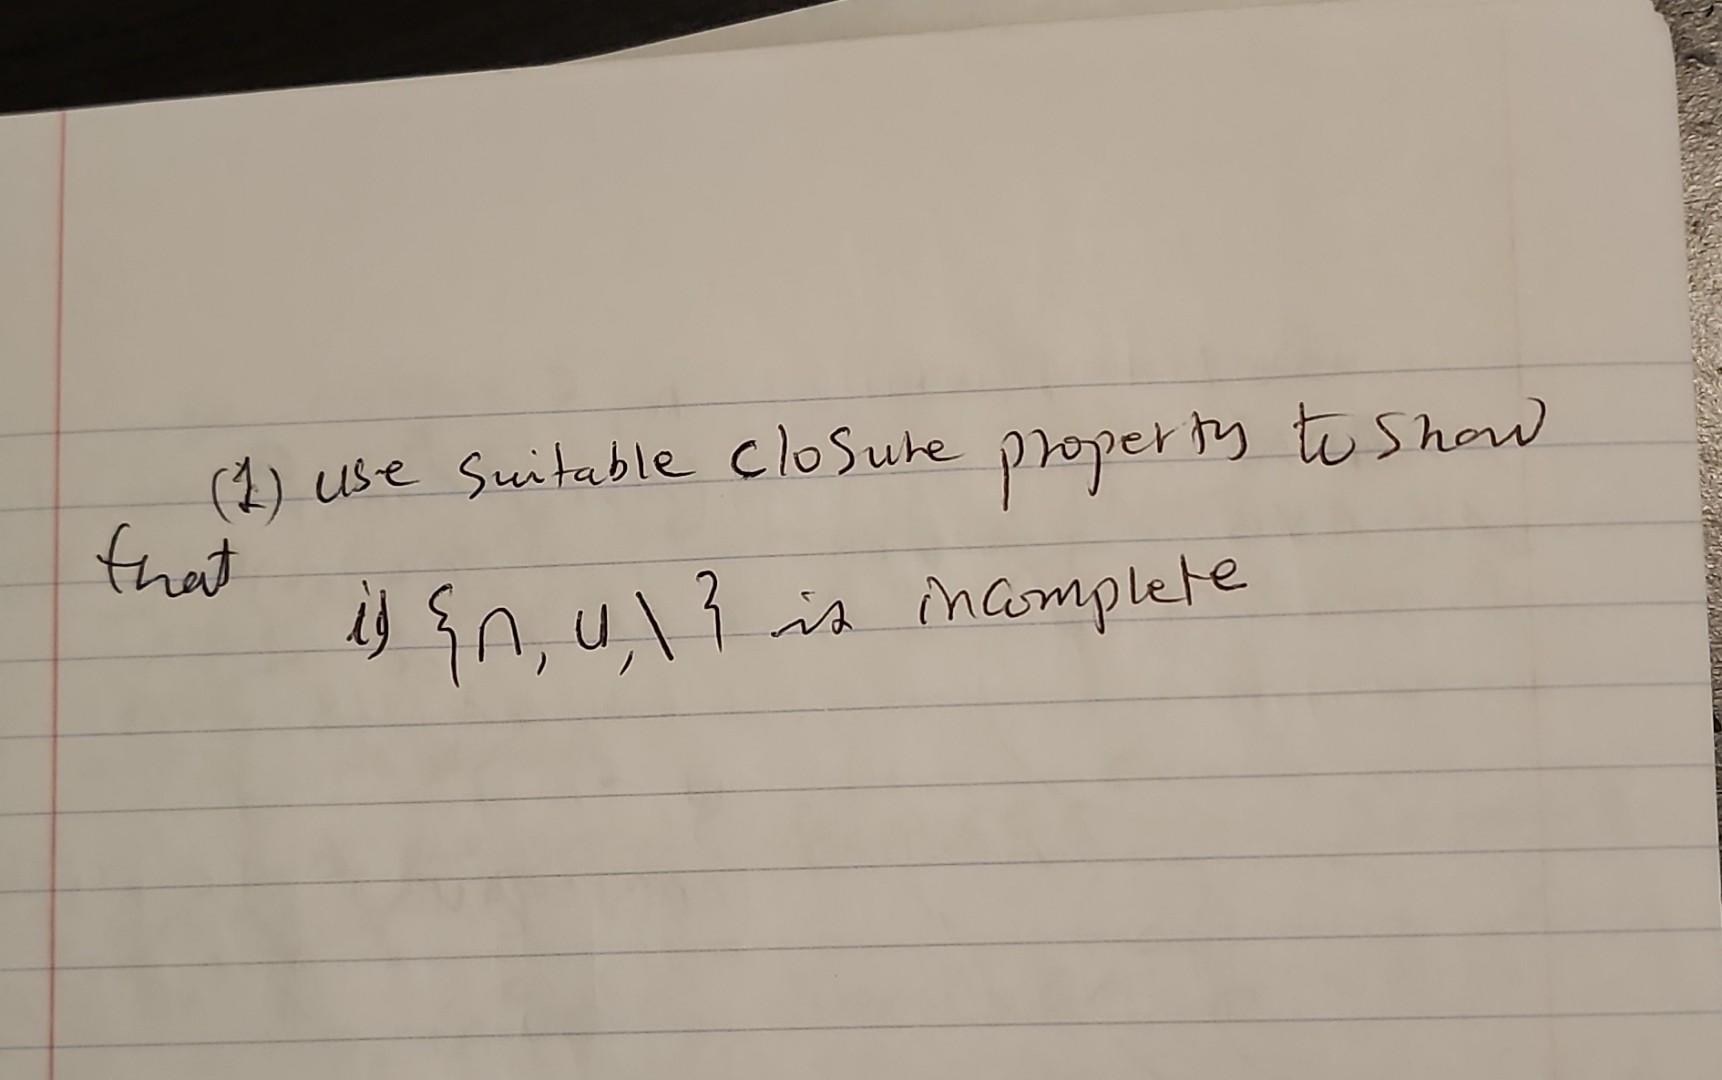 (1) use suitable closure property to show
that
is {∩, ∪, \} is incomplete